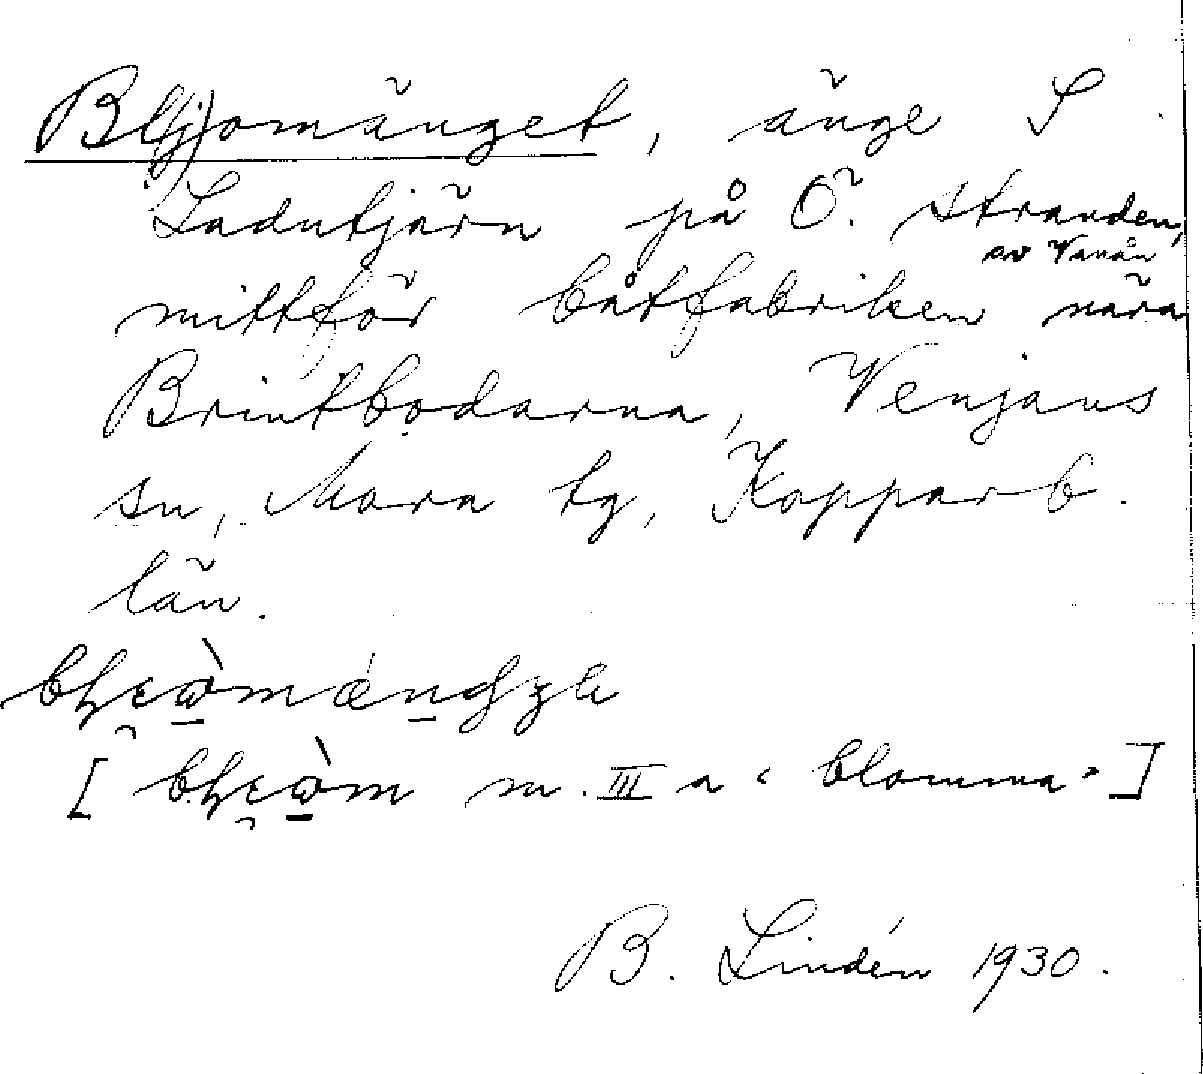 Bl(j)omänget, änge S
Ladutjärn på Ö. stranden,
av Vanån
mittför båtfabriken nära
Brintbodarna, Venjans
sn, Mora tg, Kopparb.
län.
[ m. III a "blomma" ]
B. Lindén 1930.